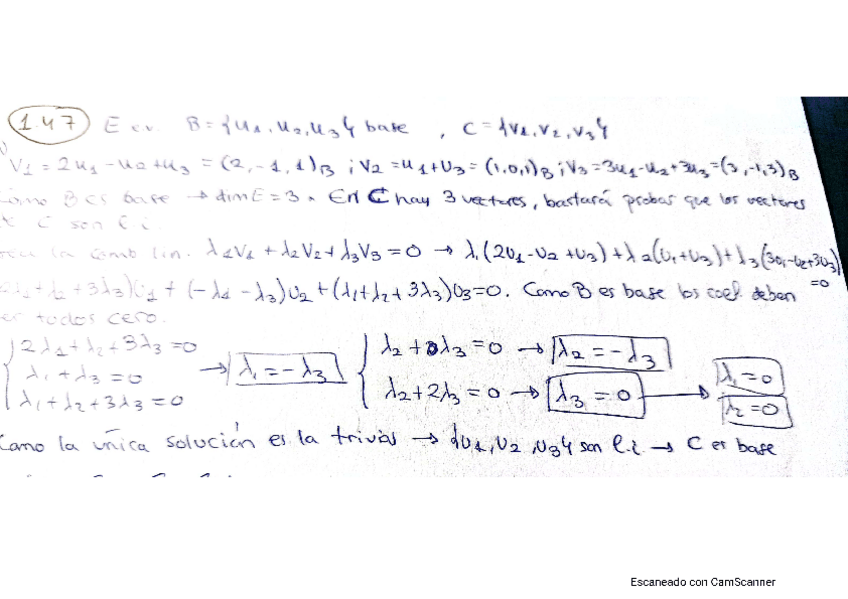 1.47 E e.v. B={u1, u2, u3} base , C={v1, v2, v3}
V1 = 2u1 - u2 + u3 = (2, -1, 1)B ; V2 = u1 + u3 = (1, 0, 1)B ; V3 = 3u1 - u2 + 3u3 = (3, -1, 3)B
Como B es base → dim E = 3. En C hay 3 vectores, bastará probar que los vectores
de C son l.i.
la comb lin. λ1V1 + λ2V2 + λ3V3 = 0 → λ1(2u1 - u2 + u3) + λ2(u1 + u3) + λ3(3u1 - u2 + 3u3) = 0
(2λ1 + λ2 + 3λ3)u1 + (-λ1 - λ3)u2 + (λ1 + λ2 + 3λ3)u3 = 0. Como B es base los coef. deben
ser todos cero.
2λ1 + λ2 + 3λ3 = 0
λ1 + λ3 = 0
λ1 + λ2 + 3λ3 = 0
→ λ1 = -λ3
λ2 + λ3 = 0 → λ2 = -λ3
λ2 + 2λ3 = 0 → λ3 = 0 → λ1 = 0
λ2 = 0
Como la única solución es la trivial → {v1, v2, v3} son l.i. → C es base
Escaneado con CamScanner